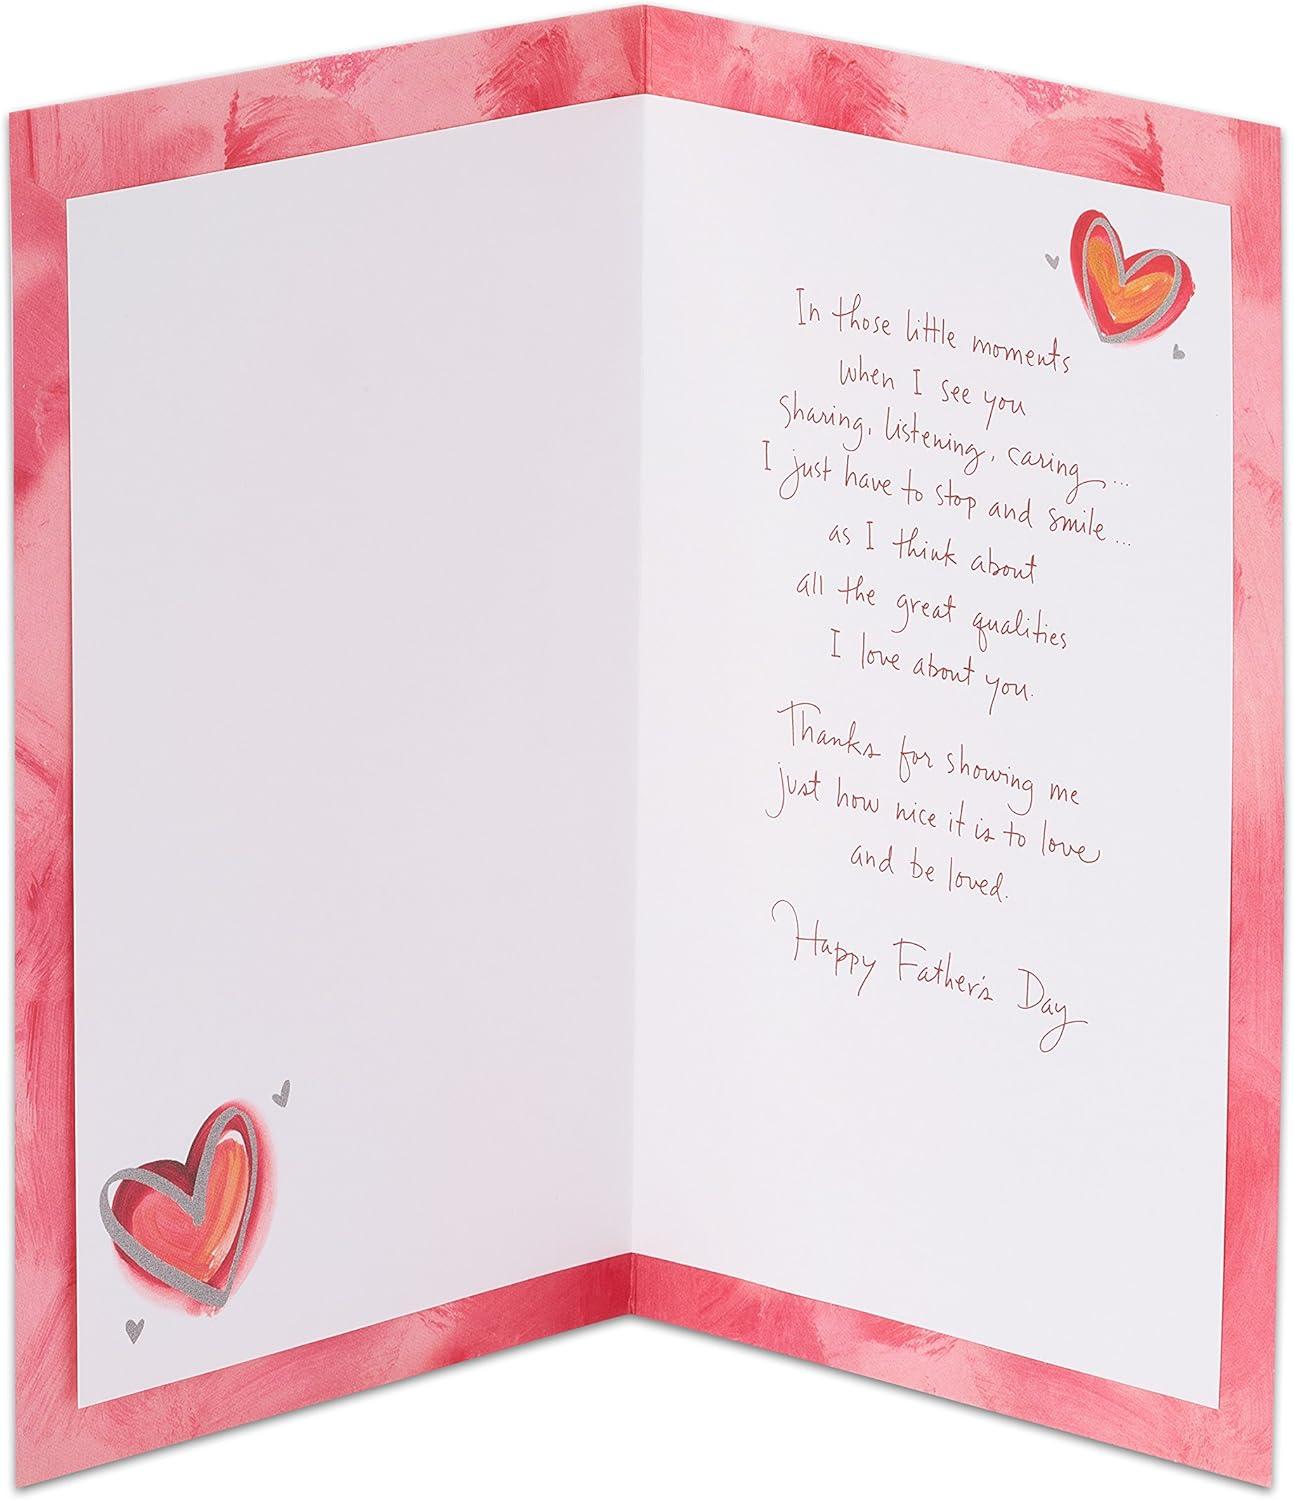 In those little moments
when I see you
sharing, listening, caring...
I just have to stop and smile...
as I think about
all the great qualities
I love about you.
Thanks for showing me
just how nice it is to love
and be loved.
Happy Father's Day